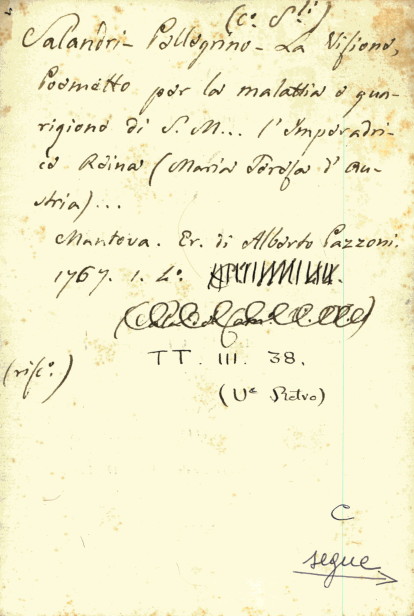 (c.º S.li)
Salandri - Pellegrino - La Visione,
Poemetto per la malattia e gua-
rigione di S. M... l'Imperadri-
ce Reina (Maria Teresa d'Au-
stria)...
Mantova. Er. di Alberto Pazzoni.
1767. 1. 4.º
TT. III. 38.
(risc.º)
(V.e Retro)
C
segue